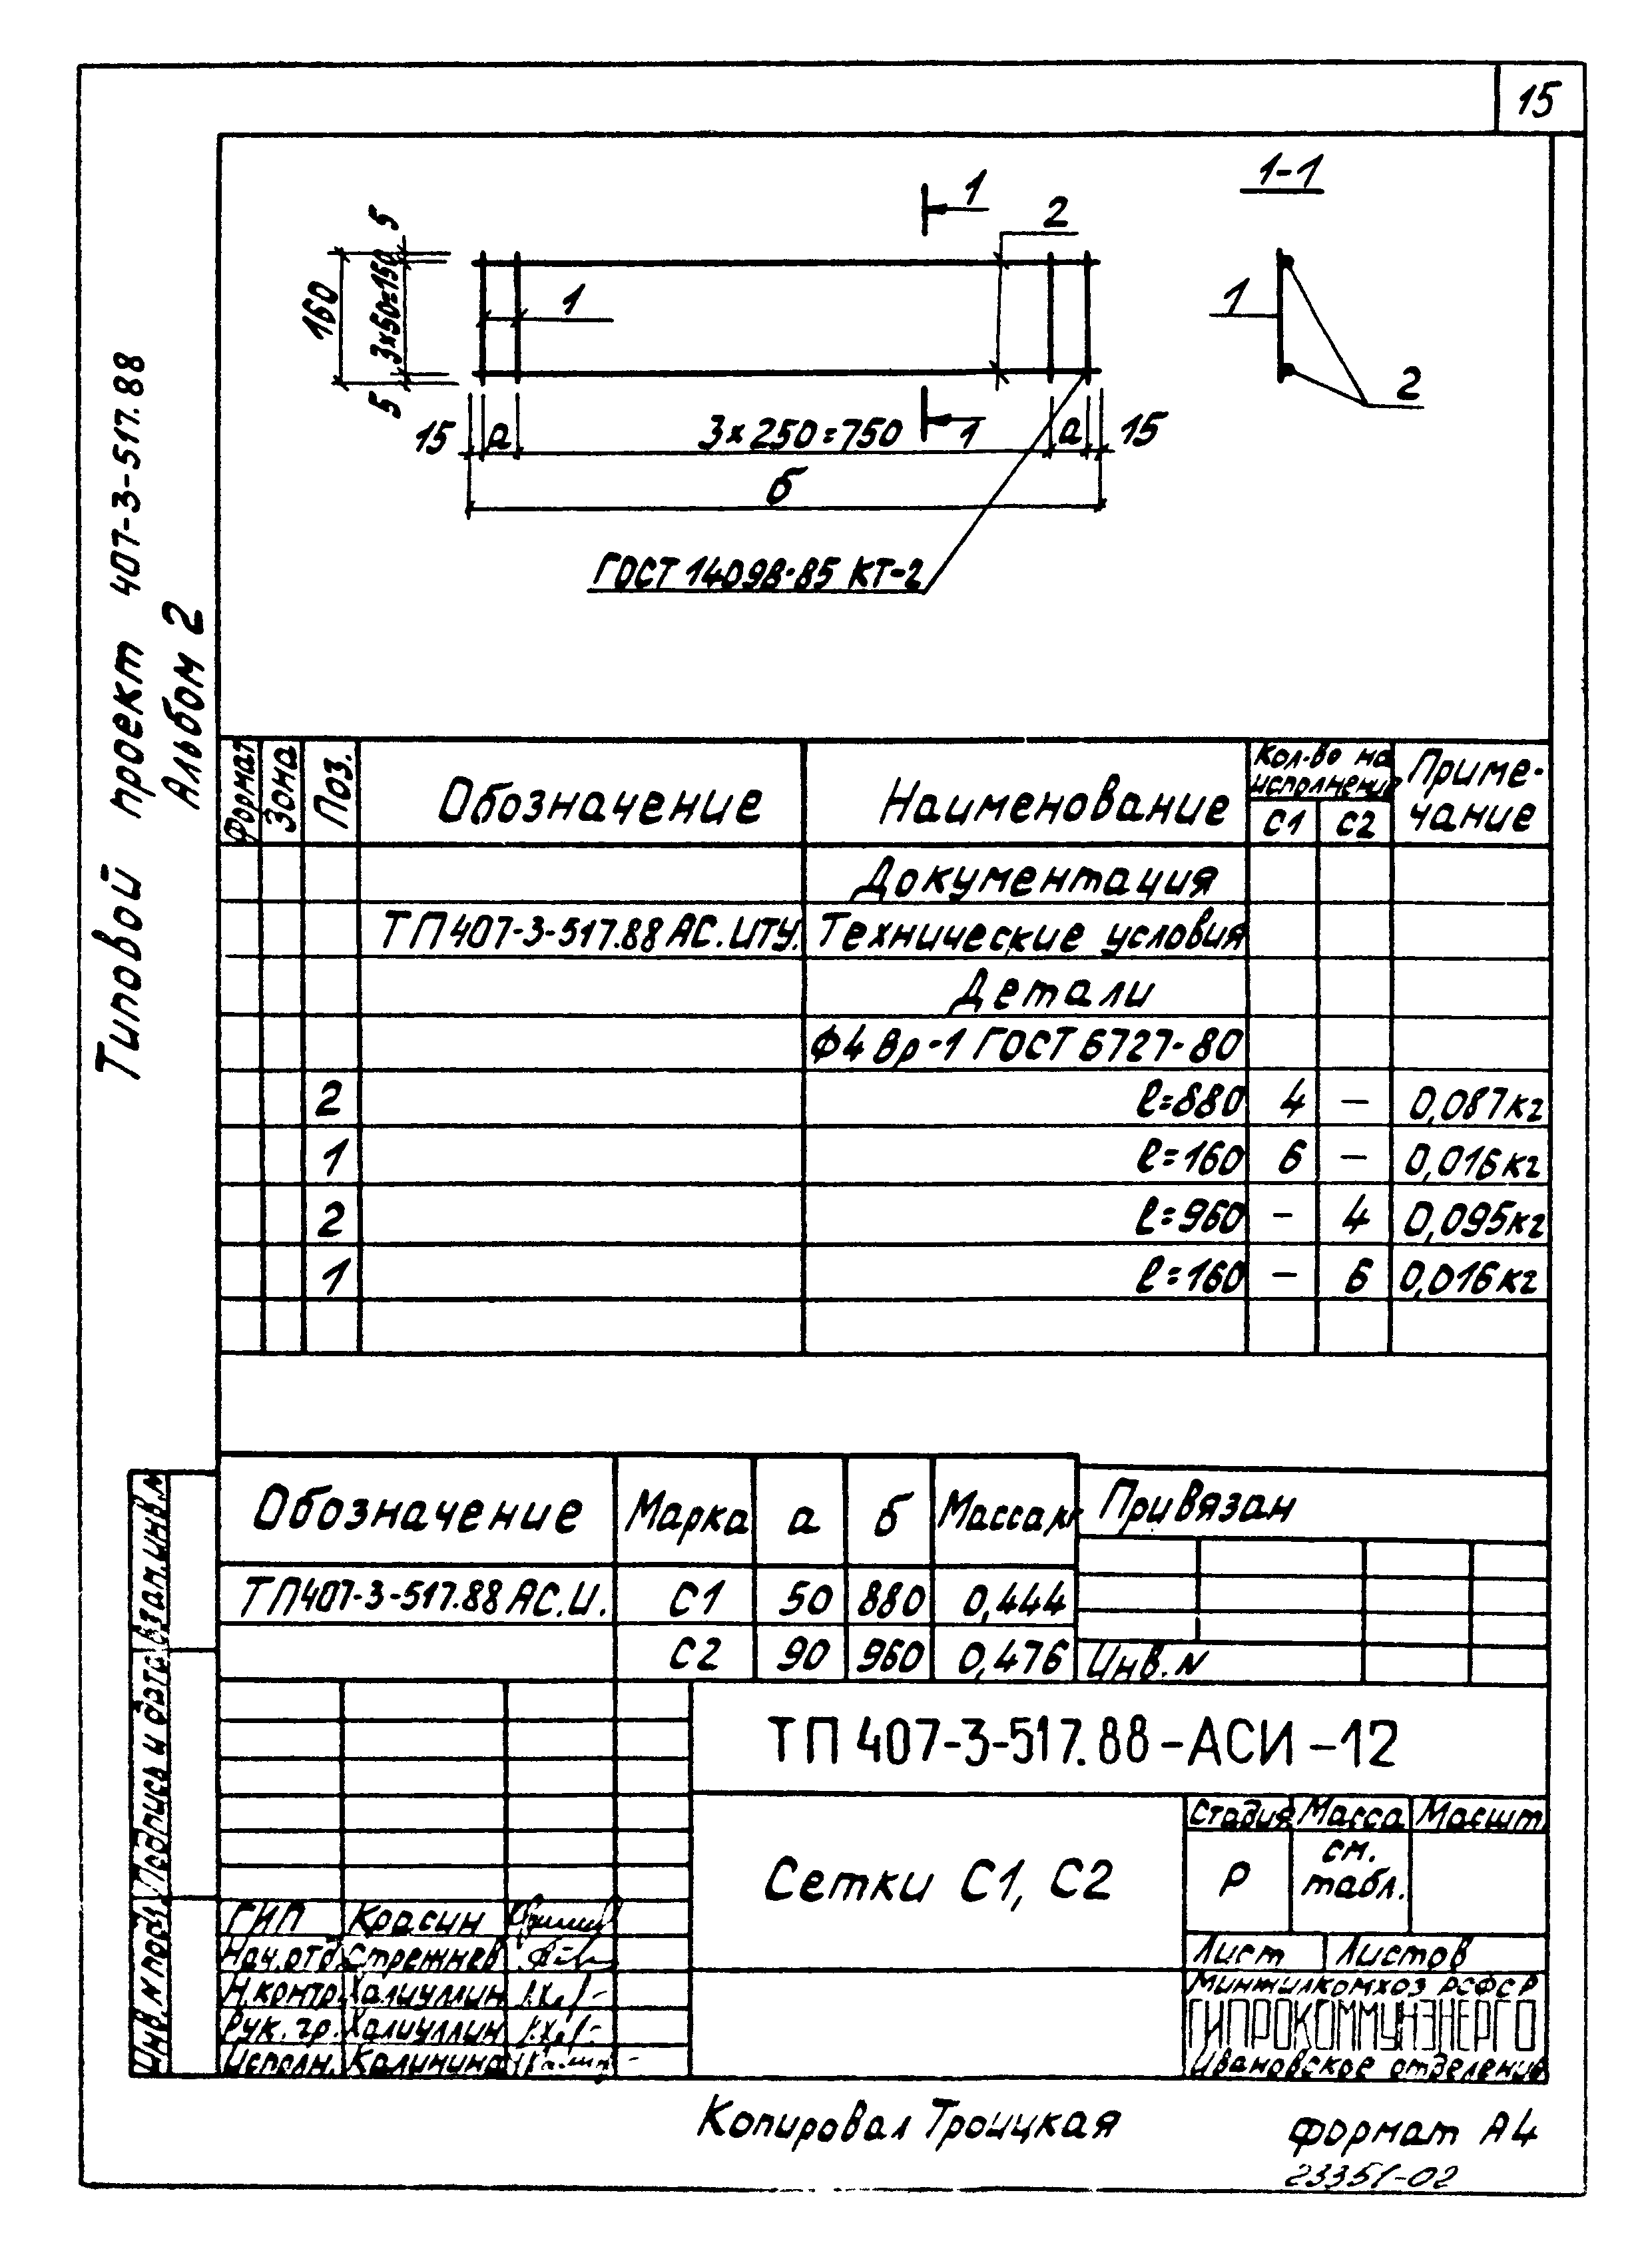 15
Типовой проект 407-3-517.88
Альбом 2
1
2
1-1
5
160
3×50=150
5
1
1
2
15 а 3×250=750 1 а 15
б
ГОСТ 14098-85 КТ-2
Формат Зона Поз. Обозначение Наименование Кол-во на исполнение С1 С2 Приме-чание
Документация
ТП407-3-517.88 АС.ИТУ. Технические условия
Детали
Ф4 Вр-1 ГОСТ 6727-80
2 ℓ=880 4 – 0,087кг
1 ℓ=160 6 – 0,016кг
2 ℓ=960 – 4 0,095кг
1 ℓ=160 – 6 0,016кг
Обозначение Марка а б Масса,кг Привязан
ТП407-3-517.88 АС.И. С1 50 880 0,444
С2 90 960 0,476 Инв.N
Взам.инв.N
Подпись и дата
Инв.N подл
ТП 407-3-517.88-АСИ-12
Сетки С1, С2
Стадия Масса Масшт
Р см. табл.
Лист Листов
Минжилкомхоз РСФСР
ГИПРОКОММУНЭНЕРГО
Ивановское отделение
ГИП Красин
Нач.отд. Стрежнев
Н.контр. Халиуллин
Рук.гр. Халиуллин
Исполн. Калинина
Копировал Троицкая
формат А4
23351-02